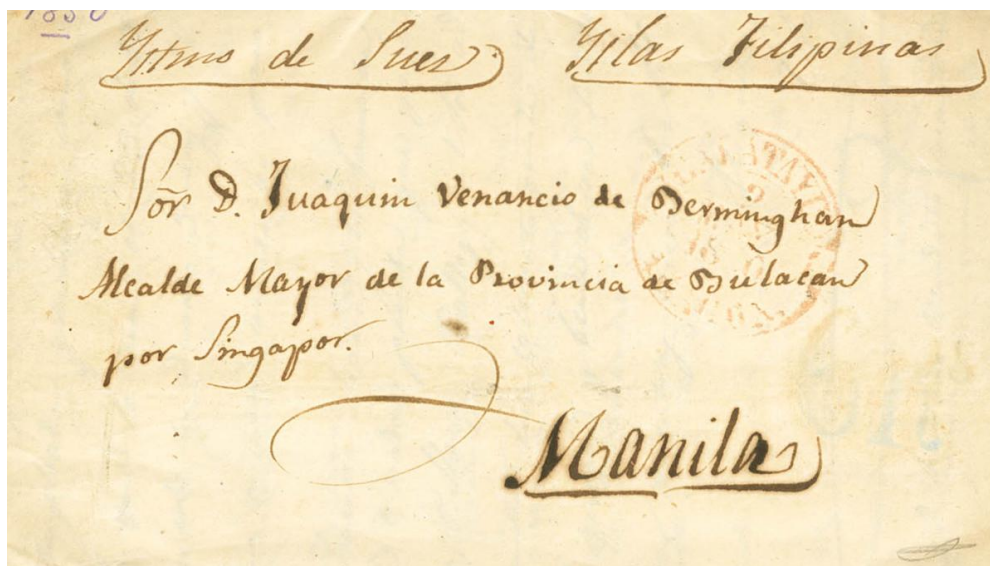 1850
Ystmo de Sues. Yslas Filipinas
Sor̃ D. Juaquin Venancio de Berminghan
Alcalde Mayor de la Provincia de Bulacan
por Singapor.
Manila
CALATAYUD